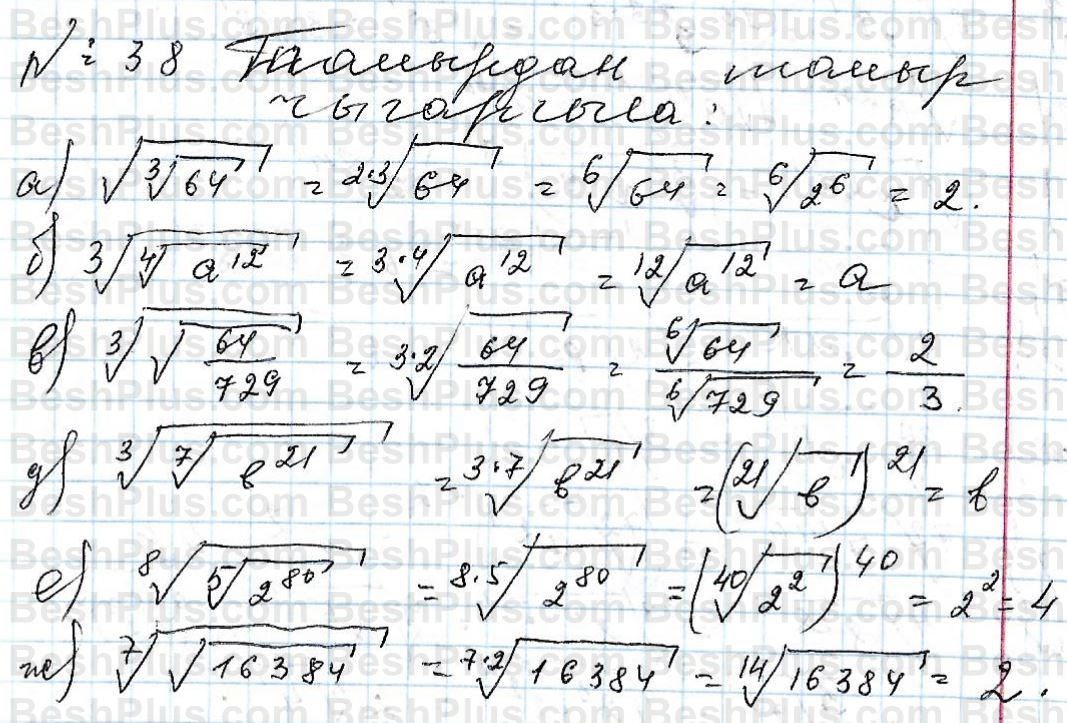 № 38 Тамырдан тамыр
чыгаргыла:
а) √(∛64) = ²·³√64 = ⁶√64 = ⁶√2⁶ = 2.
б) ∛(⁴√a¹²) = ³·⁴√a¹² = ¹²√a¹² = a
в) ∛(√(64/729)) = ³·²√(64/729) = ⁶√64/⁶√729 = 2/3.
д) ∛(⁷√в²¹) = ³·⁷√в²¹ = (²¹√в)²¹ = в
е) ⁸√(⁵√2⁸⁰) = ⁸·⁵√2⁸⁰ = (⁴⁰√2²)⁴⁰ = 2² = 4
ж) ⁷√(√16384) = ⁷·²√16384 = ¹⁴√16384 = 2.
BeshPlus.com